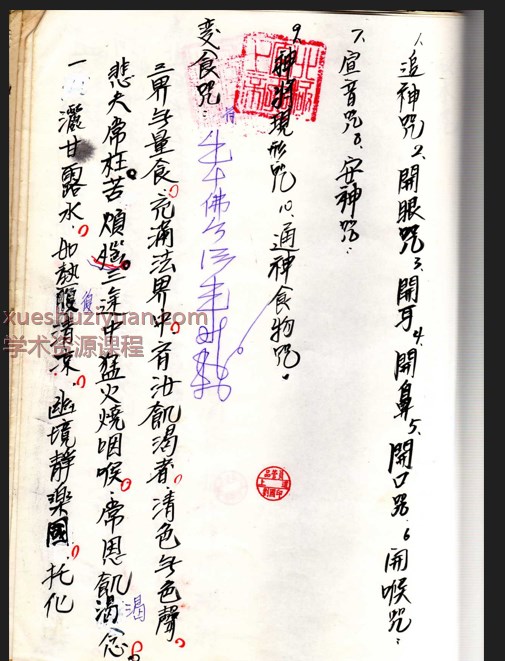 1、追神咒2、開眼咒3、開耳4、開鼻5、開口咒、6開喉咒：
7、宣音咒8、安神咒：
9、神將現形咒、10、通神食物咒。
变食咒：
三界無量食、充滿法界中、有汝飢渴者、清色無色聲、
悲夫常枉苦、煩惱三途中、猛火燒咽喉、常思飢渴念、
一灑甘露水、如熱腹清涼、幽境靜樂國、托化
復
渴
xueshuziyuan.com
学术资源课程